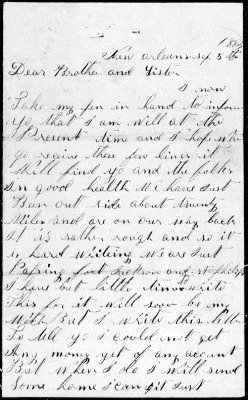 New orleans
Dear Brother and Sister
I now
Take my pen in hand to inform
yo that I am well at the
Present time and I hope when
yo receive these few lines it
Will find yo and the folkes
In good health We have Just
Bun out side about twenty
Miles and are on our way back
It is rather rough and so it
is hard writing We are Just
Passing fort Jackson and st philip
I have but little time write
This for it will soon be my
Watch But I write this lette
To tell yo I could not get
Any money yet of any account
But when I do I will send
Some home I can git Just